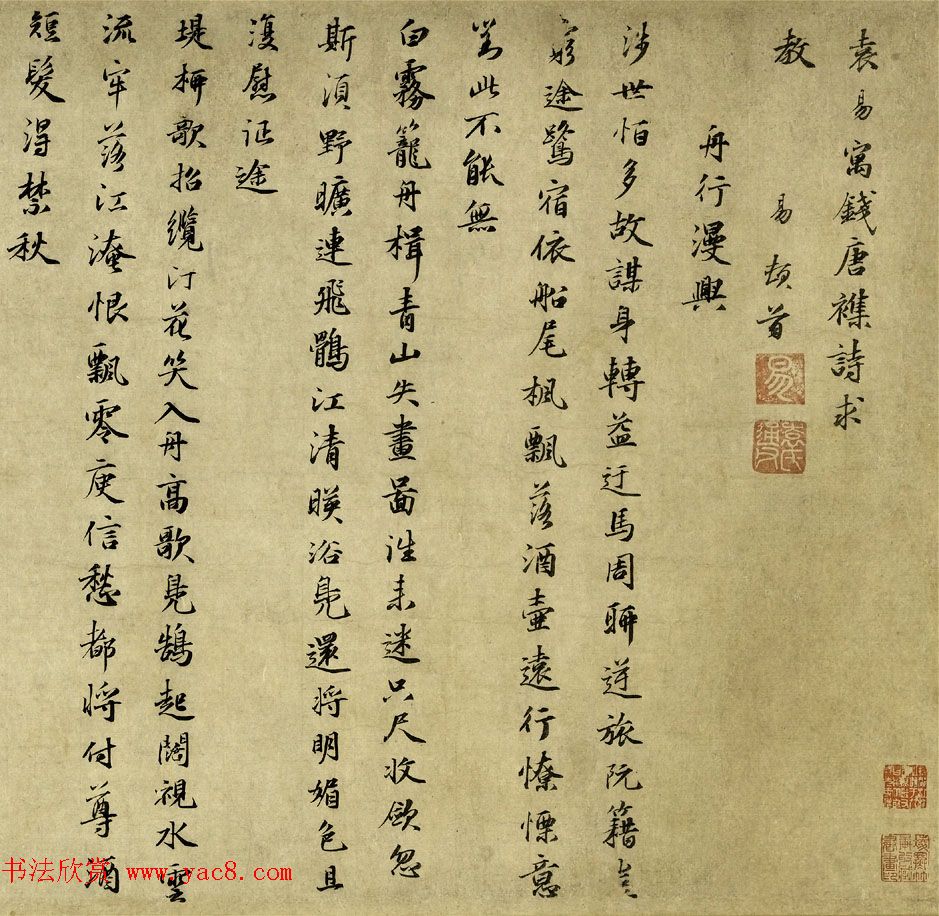 袁易寓錢唐襍詩求
教
易頓首
易
袁氏通父
舟行漫興
涉世怕多故謀身轉益迂馬周聊逆旅阮籍豈
窮途鷺宿依船尾楓飄落酒壺遠行憭慄意
對此不能無
白霧籠舟楫青山失畫啚往来迷只尺收歛忽
斯湏野曠連飛鶻江清暎浴鳧還将明媚色且
復慰征途
堤柳歌招纜汀花笑入舟高歌鳧鵠起闊視水雲
流牢落江淹恨飄零庾信愁都將付尊酒
短髮得禁秋
书法欣赏 www.yac8.com